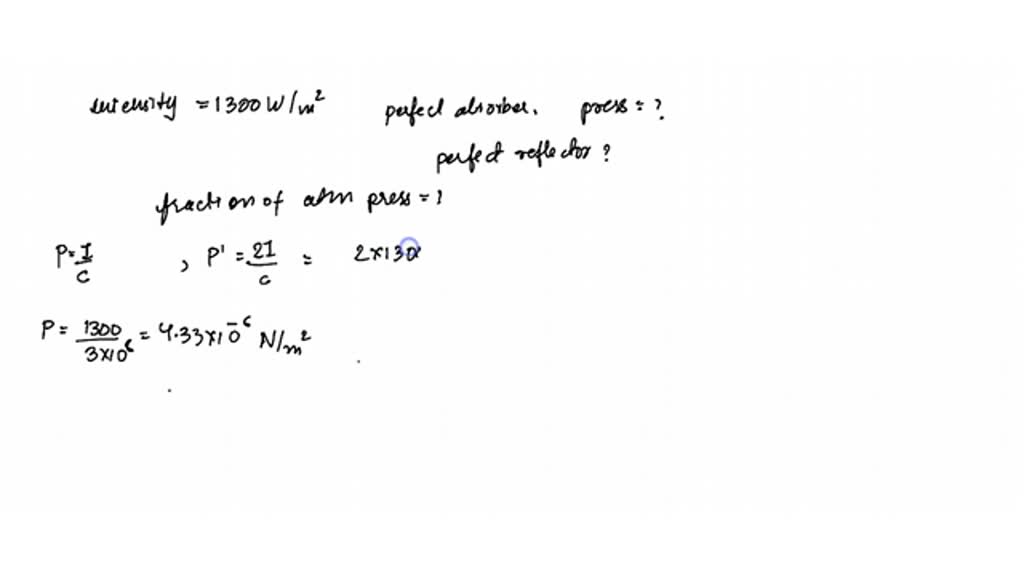 intensity = 1300 W/m² perfect absorber. press = ?
perfect reflector ?
fraction of atm press = ?
P = I/c , P' = 2I/c = 2×130
P = 1300/3×10⁶ = 4.33×10⁻⁶ N/m²